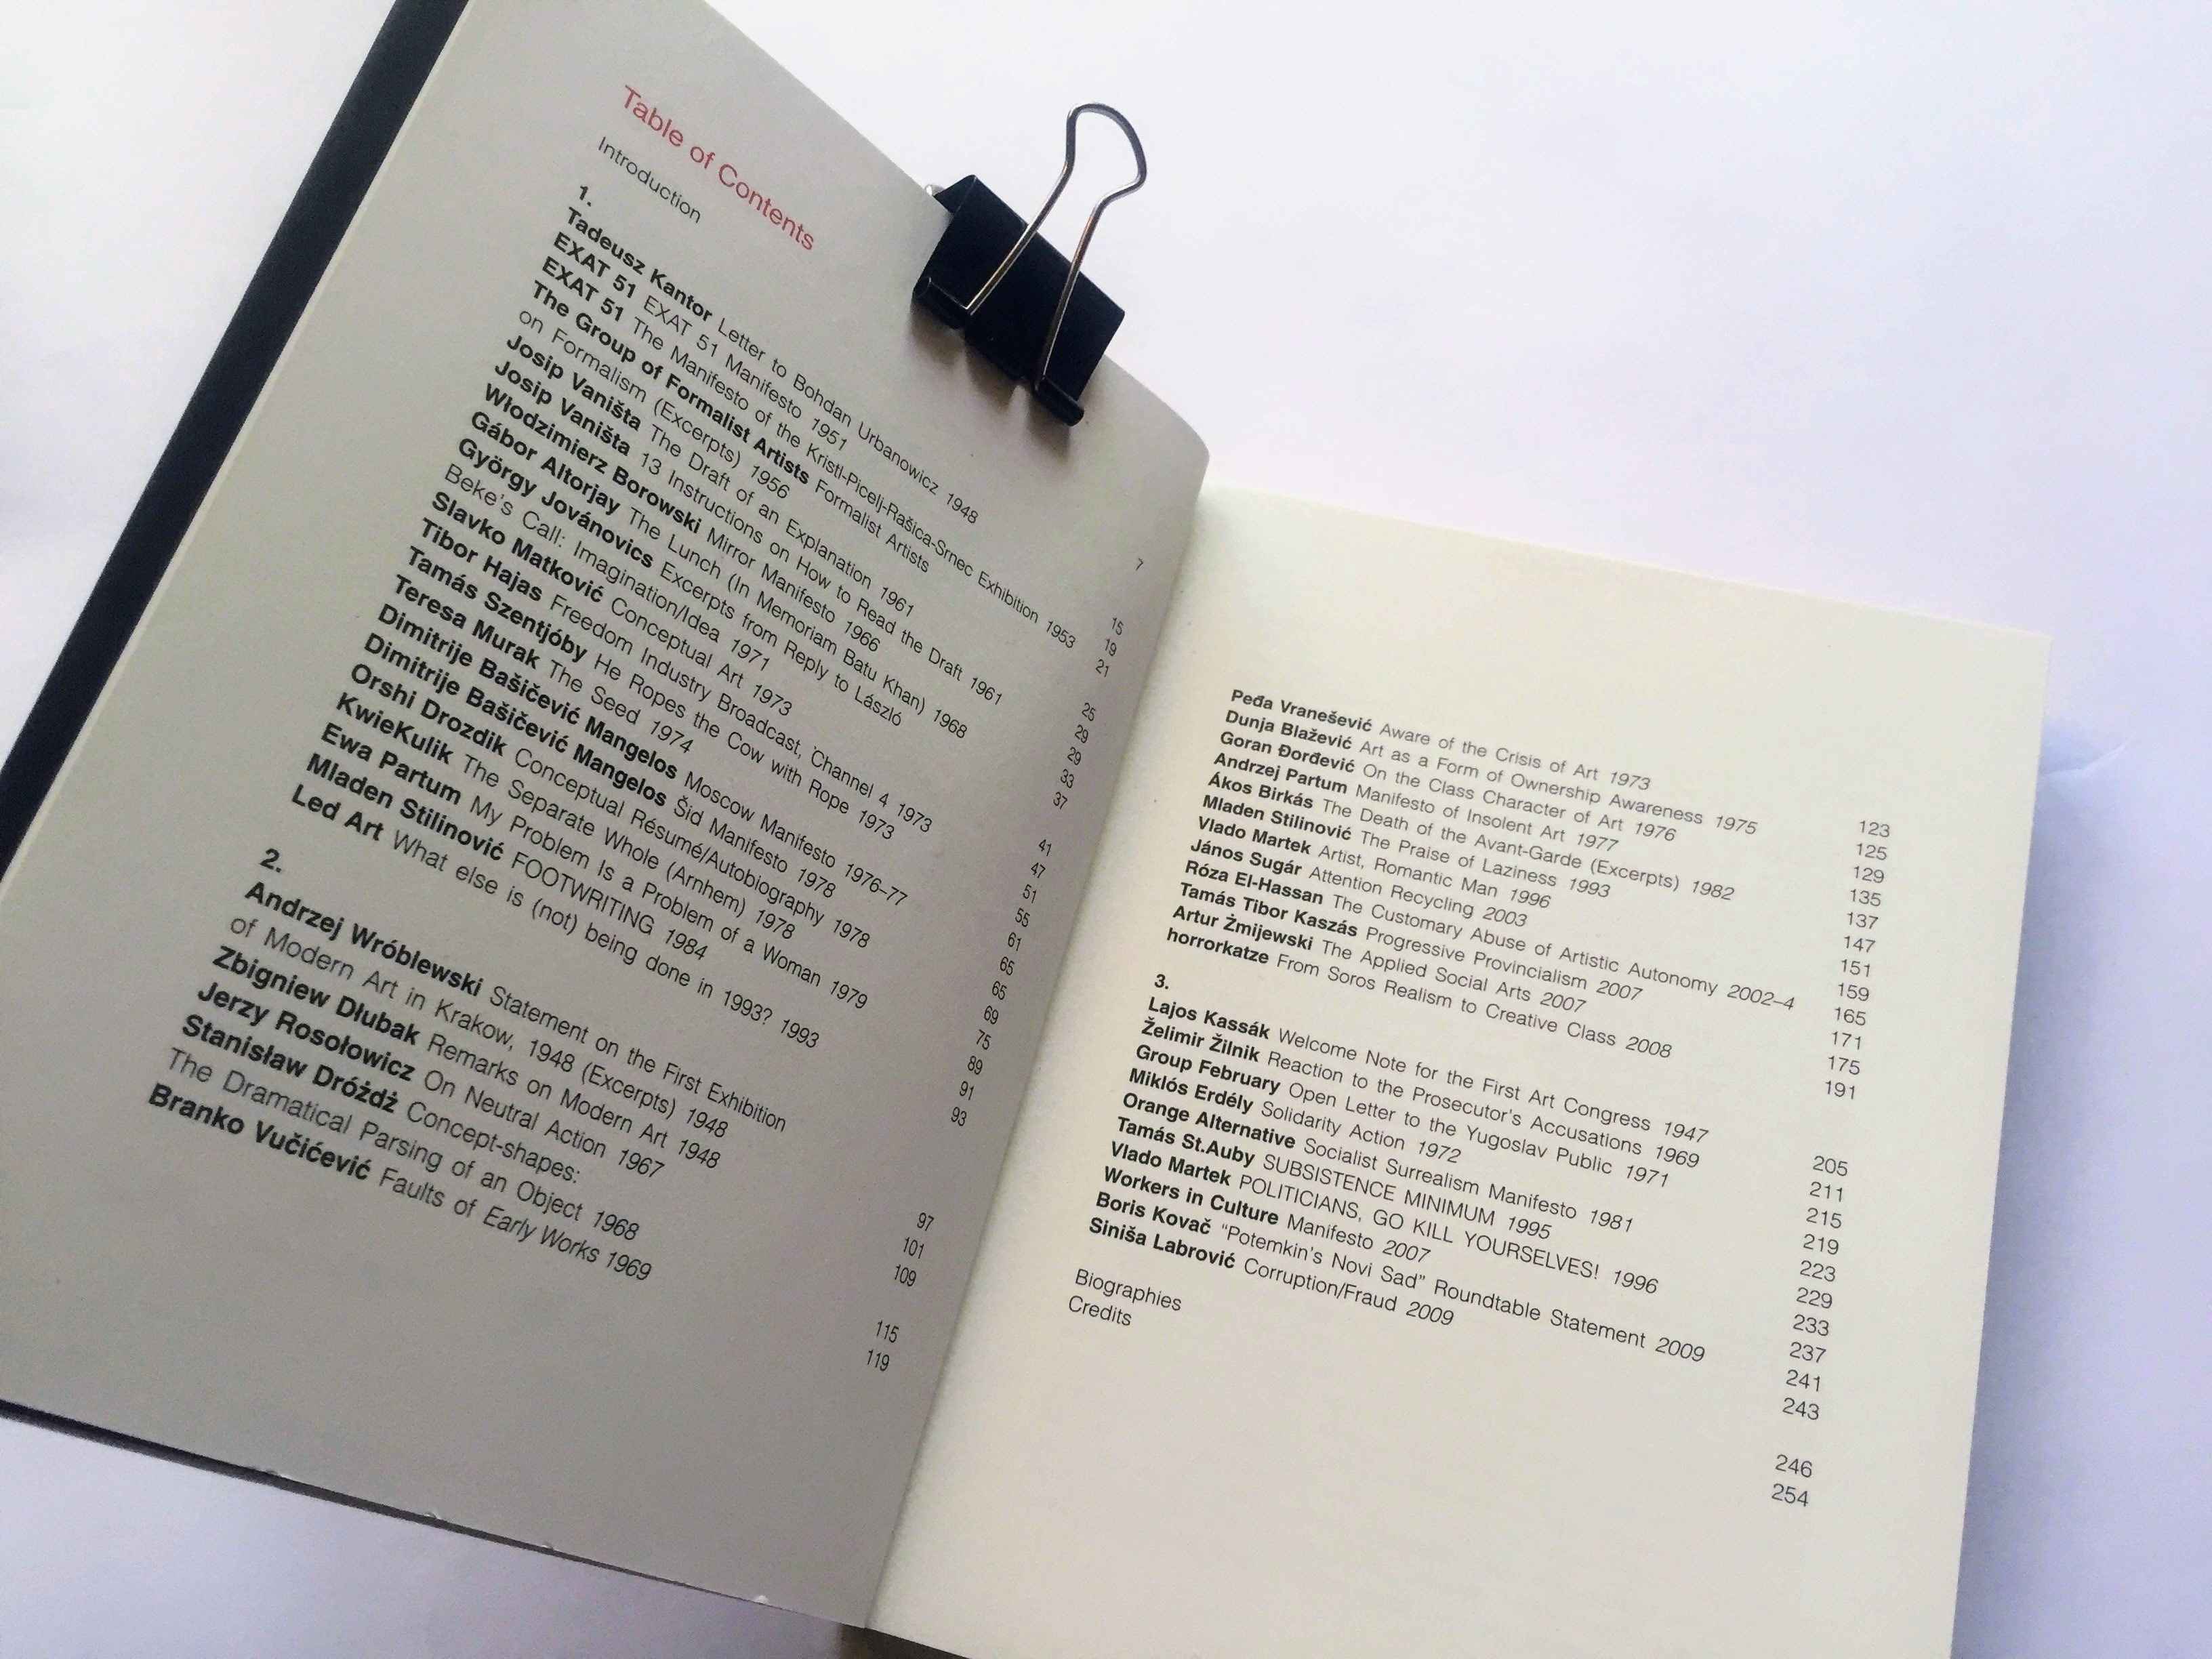 Table of Contents
Introduction 7
1.
Tadeusz Kantor Letter to Bohdan Urbanowicz 1948 15
EXAT 51 EXAT 51 Manifesto 1951 19
EXAT 51 The Manifesto of the Kristl-Picelj-Rašica-Srnec Exhibition 1953 21
The Group of Formalist Artists Formalist Artists
on Formalism (Excerpts) 1956 25
Josip Vaništa The Draft of an Explanation 1961 29
Josip Vaništa 13 Instructions on How to Read the Draft 1961 29
Włodzimierz Borowski Mirror Manifesto 1966 33
Gábor Altorjay The Lunch (In Memoriam Batu Khan) 1968 37
György Jovánovics Excerpts from Reply to László
Beke's Call: Imagination/Idea 1971 41
Slavko Matković Conceptual Art 1973 47
Tibor Hajas Freedom Industry Broadcast, Channel 4 1973 51
Tamás Szentjóby He Ropes the Cow with Rope 1973 55
Teresa Murak The Seed 1974 61
Dimitrije Bašičević Mangelos Moscow Manifesto 1976–77 65
Dimitrije Bašičević Mangelos Šid Manifesto 1978 65
Orshi Drozdik Conceptual Résumé/Autobiography 1978 69
KwieKulik The Separate Whole (Arnhem) 1978 75
Ewa Partum My Problem Is a Problem of a Woman 1979 89
Mladen Stilinović FOOTWRITING 1984 91
Led Art What else is (not) being done in 1993? 1993 93
2.
Andrzej Wróblewski Statement on the First Exhibition
of Modern Art in Krakow, 1948 (Excerpts) 1948 97
Zbigniew Dłubak Remarks on Modern Art 1948 101
Jerzy Rosołowicz On Neutral Action 1967 109
Stanisław Dróżdż Concept-shapes:
The Dramatical Parsing of an Object 1968 115
Branko Vučićević Faults of Early Works 1969 119
Peđa Vranešević Aware of the Crisis of Art 1973 123
Dunja Blažević Art as a Form of Ownership Awareness 1975 125
Goran Đorđević On the Class Character of Art 1976 129
Andrzej Partum Manifesto of Insolent Art 1977 135
Ákos Birkás The Death of the Avant-Garde (Excerpts) 1982 137
Mladen Stilinović The Praise of Laziness 1993 147
Vlado Martek Artist, Romantic Man 1996 151
János Sugár Attention Recycling 2003 159
Róza El-Hassan The Customary Abuse of Artistic Autonomy 2002–4 165
Tamás Tibor Kaszás Progressive Provincialism 2007 171
Artur Żmijewski The Applied Social Arts 2007 175
horrorkatze From Soros Realism to Creative Class 2008 191
3.
Lajos Kassák Welcome Note for the First Art Congress 1947 205
Želimir Žilnik Reaction to the Prosecutor's Accusations 1969 211
Group February Open Letter to the Yugoslav Public 1971 215
Miklós Erdély Solidarity Action 1972 219
Orange Alternative Socialist Surrealism Manifesto 1981 223
Tamás St.Auby SUBSISTENCE MINIMUM 1995 229
Vlado Martek POLITICIANS, GO KILL YOURSELVES! 1996 233
Workers in Culture Manifesto 2007 237
Boris Kovač “Potemkin's Novi Sad” Roundtable Statement 2009 241
Siniša Labrović Corruption/Fraud 2009 243
Biographies 246
Credits 254